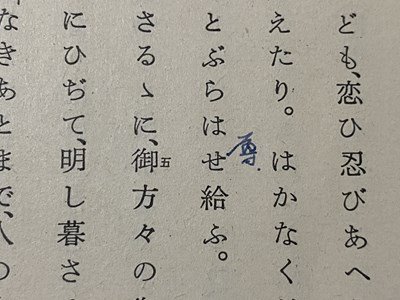 ども、恋ひ忍びあへ
えたり。はかなく
とぶらはせ給ふ。
尊
さるゝに、御方々の
五
にひぢて、明し暮さ
なきあとまで、人の